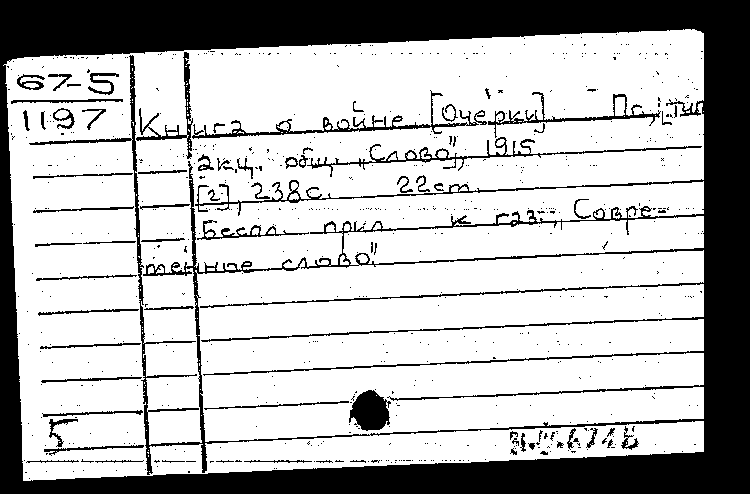 67-5
1197
Книга о войне. [Очерки]. Пг., [тип
акц. общ. „Слово", 1915.
[2], 238 с. 22 см.
Беспл. прил. к газ. „Совре-
менное слово"
5